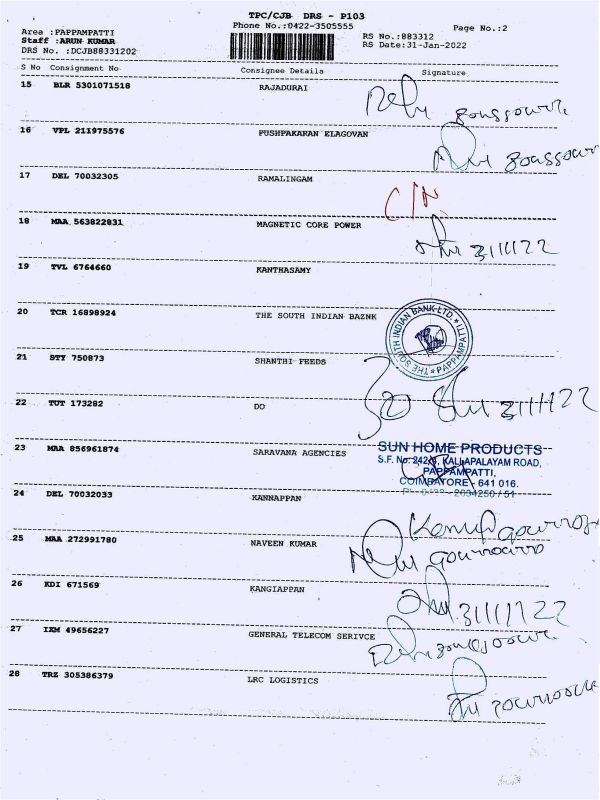 TPC/CJB DRS - P103
Phone No.:0422-3505555
Page No.:2
Area :PAPPAMPATTI
Staff :ARUN KUMAR
DRS No. :DCJB88331202
RS No.:883312
RS Date:31-Jan-2022
S No Consignment No Consignee Details Signature
15 BLR 5301071518 RAJADURAI
16 VPL 211975576 PUSHPAKARAN ELAGOVAN
17 DEL 70032305 RAMALINGAM C/N
18 MAA 563822831 MAGNETIC CORE POWER 31/1/22
19 TVL 6764660 KANTHASAMY
20 TCR 16898924 THE SOUTH INDIAN BAZNK
THE SOUTH INDIAN BANK LTD. * PAPPAMPATTI *
21 STY 750873 SHANTHI FEEDS
22 TUT 173282 DO 31/1/22
23 MAA 856961874 SARAVANA AGENCIES
SUN HOME PRODUCTS
S.F. No. 242/5, KALLAPALAYAM ROAD,
PAPPAMPATTI,
COIMBATORE - 641 016.
24 DEL 70032033 KANNAPPAN
25 MAA 272991780 NAVEEN KUMAR
26 KDI 671569 KANGIAPPAN 31/1/22
27 IXM 49656227 GENERAL TELECOM SERIVCE
28 TRZ 305386379 LRC LOGISTICS